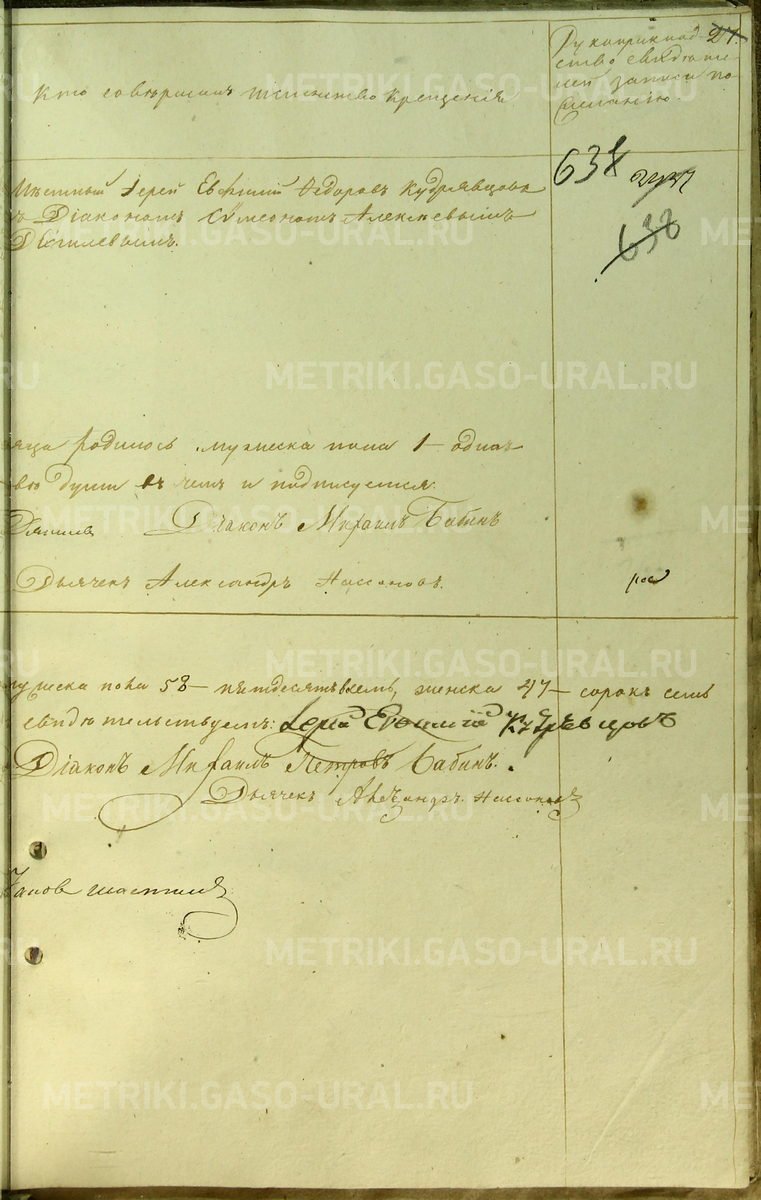 Кто совершилъ таинство крещенія
Рукоприклад-
ство свидѣте-
лей записи по
желанію.
24.
638
638
Мѣстный Іерей Евфимій Ѳедоровъ Кудрявцовъ
съ Діакономъ Сѵмеономъ Алексѣевымъ
родилось мужеска пола 1 – одна
души въ чемъ и подписуемся
Діаконъ Михаилъ Бабинъ
Дьячекъ Александръ
мужеска пола 58 – пятдесятъ восемь, женска 47 – сорокъ семь
свидѣтельствуемъ: Іерей Евфимій Кудрявцовъ
Діаконъ Михаилъ Петровъ Бабинъ.
Дьячекъ Александръ
METRIKI.GASO-URAL.RU